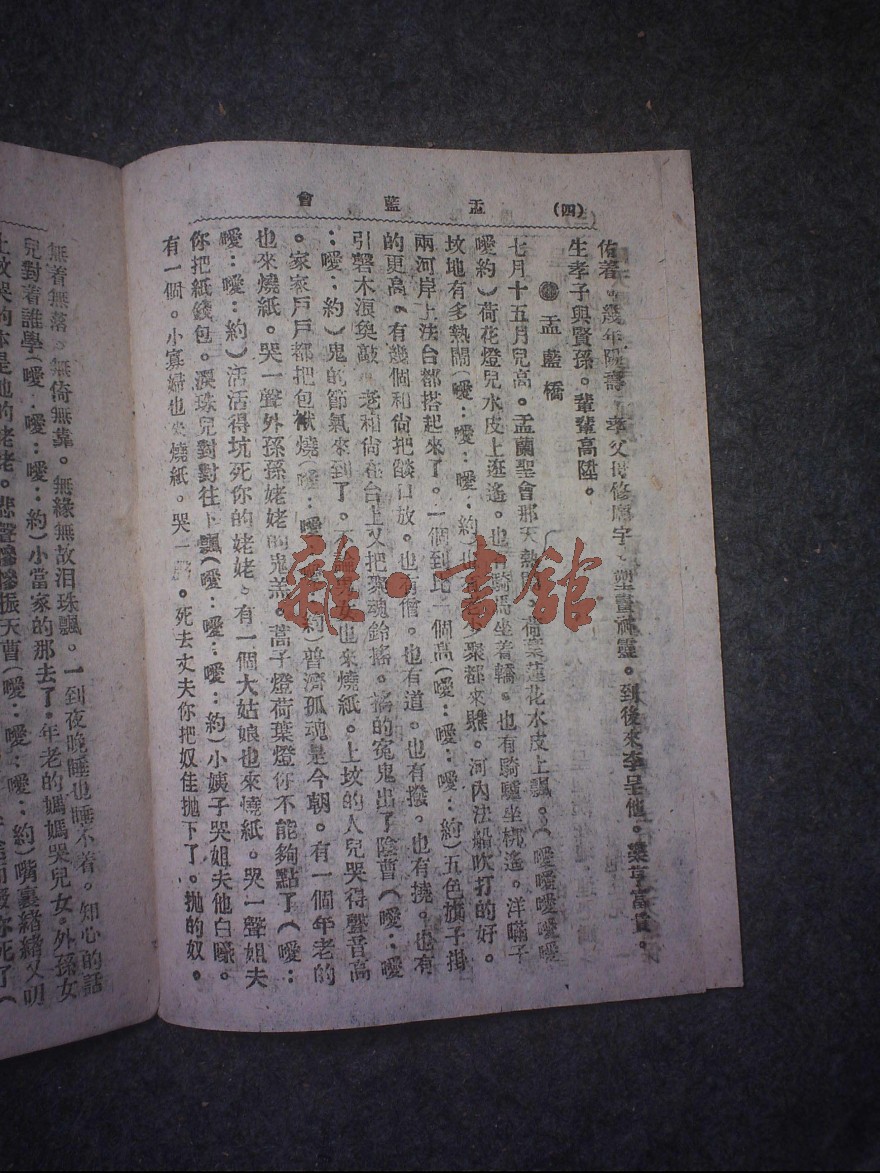 (四)
盂藍會
佑着。幾年陽壽。李父母修廟宇。塑聖神靈。到後來李呈他。榮享富貴。
生孝子與賢孫。輩輩高陞。
盂藍橋
七月十五月兒高。盂蘭聖會那天熱鬧。荷葉蓮花水皮上飄。(噯噯噯噯
噯約)荷花燈兒水皮上逛遙。也有騎馬坐着轎。也有騎驢坐梆遙。洋嗬子
坟地有多熱鬧(噯:噯:噯:約)多聚都來瞧。河內法船吹打的好。
兩河岸上法台都搭起來了。一個到比一個高(噯:噯:噯:約)五色旗子掛
的更高。有幾個和尚把燄口放。也有僧。也有道。也有撥。也有撓。也有
引磬木浪奐敲。老和尚在台上又把聚魂鈴搖。搖的寃鬼出了陰曹(噯:噯
:噯:約)鬼的節氣來到了。不論男女也來燒紙。上坟的人兒哭得聲音高
。家家戶戶都把包袱燒(噯:噯約)普濟孤魂是今朝。有一個年老的
也來燒紙。哭一聲外孫孫姥姥的鬼羔。蒿子燈荷葉燈你不能夠點了(噯:
噯:噯:約)活活得坑死你的姥姥。有一個大姑娘也來燒紙。哭一聲姐夫
你把紙錢包。淚珠兒對對往下飄(噯:噯:噯:約)小姨子哭姐夫他白瞹。
有一個。小寡婦也來燒紙。哭一聲。死去丈夫你把奴佳抛下了。抛的奴。
無着無落。無倚無靠。無緣無故泪珠飄。一到夜晚睡也睡不着。知心的話
兒對着誰學(噯:噯:噯:約)小當家的那去了。年老的媽媽哭兒女。外孫女
上坟哭的本是他的姥姥。悲聲慘慘振天曹(噯:噯:噯:約)嘴裏緒緒又叨
你死了(
雜·書館